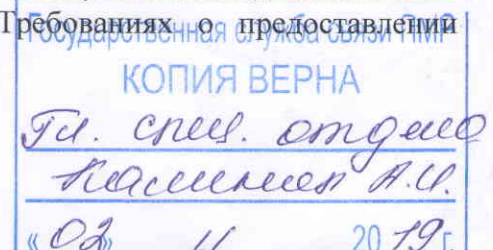 Требованиях о предоставлении
Государственная служба связи ПМР
КОПИЯ ВЕРНА
Гл. спец. отдела
А.И.
« 02 » 11 20 19 г.